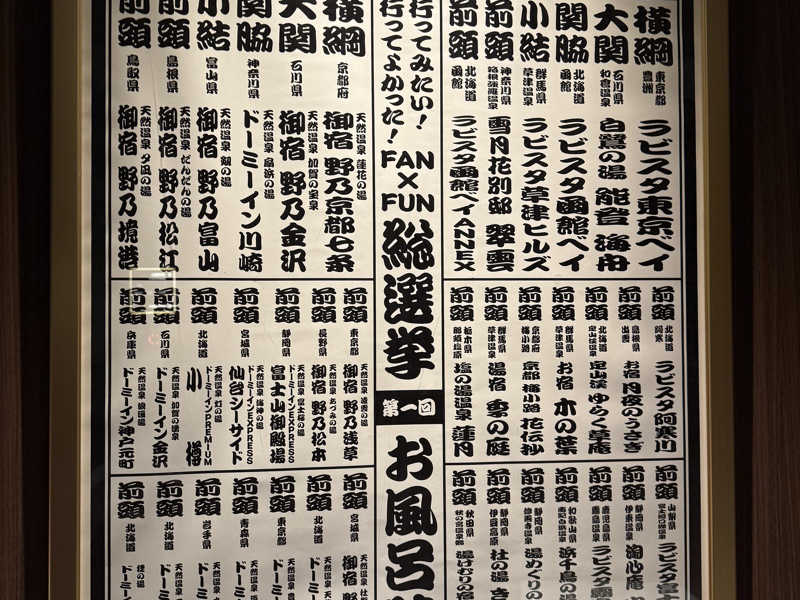 横綱
東京都
豊洲
ラビスタ東京ベイ
大関
石川県
和倉温泉
白鷺の湯 能登 海舟
関脇
北海道
函館
ラビスタ函館ベイ
小結
群馬県
草津温泉
ラビスタ草津ヒルズ
前頭
神奈川県
箱根強羅温泉
雪月花別邸 翠雲
前頭
北海道
函館
ラビスタ函館ベイANNEX
前頭
北海道
阿寒
ラビスタ阿寒川
前頭
島根県
出雲
お宿 月夜のうさぎ
前頭
北海道
定山渓温泉
定山渓 ゆらく草庵
前頭
群馬県
草津温泉
お宿 木の葉
前頭
京都府
梅小路
京都 梅小路 花伝抄
前頭
群馬県
草津温泉
湯宿 季の庭
前頭
栃木県
那須塩原
塩の湯温泉 蓮月
前頭
山梨県
富士河口湖温泉
ラビスタ富士
前頭
静岡県
伊東温泉
淘心庵
前頭
鹿児島県
霧島温泉
ラビスタ霧
前頭
和歌山県
南紀白浜温泉
浜千鳥の湯
前頭
静岡県
修善寺温泉
湯めぐりの
前頭
静岡県
伊豆高原
杜の湯 き
前頭
秋田県
秋の宮温泉郷
湯けむりの宿
行ってみたい!
行ってよかった!
FAN×FUN
総選挙
第一回
お風呂
横綱
京都府
天然温泉 蓮花の湯
御宿 野乃京都七条
大関
石川県
天然温泉 加賀の宝泉
御宿 野乃金沢
関脇
神奈川県
天然温泉 扇浜の湯
ドーミーイン川崎
小結
富山県
天然温泉 剱の湯
御宿 野乃富山
前頭
島根県
天然温泉 だんだんの湯
御宿 野乃松江
前頭
鳥取県
天然温泉 夕凪の湯
御宿 野乃境港
前頭
東京都
天然温泉 凌雲の湯
御宿 野乃浅草
前頭
長野県
天然温泉 あづみの湯
御宿 野乃松本
前頭
静岡県
天然温泉 富士桜の湯
ドーミーインEXPRESS
富士山御殿場
前頭
宮城県
天然温泉 海神の湯
ドーミーインEXPRESS
仙台シーサイド
前頭
北海道
天然温泉 灯の湯
ドーミーインPREMIUM
小樽
前頭
石川県
天然温泉 加賀の湧泉
ドーミーイン金沢
前頭
兵庫県
天然温泉 浪漫湯
ドーミーイン神戸元町
前頭
宮城県
天然温泉
御宿 野
前頭
北海道
天然温泉
ドーミー
前頭
東京都
天然温泉
ドーミー
前頭
青森県
天然温泉
ドーミー
前頭
岩手県
天然温泉
ドーミー
前頭
北海道
天然温泉
ドーミー
前頭
北海道
の湯
ドーミー